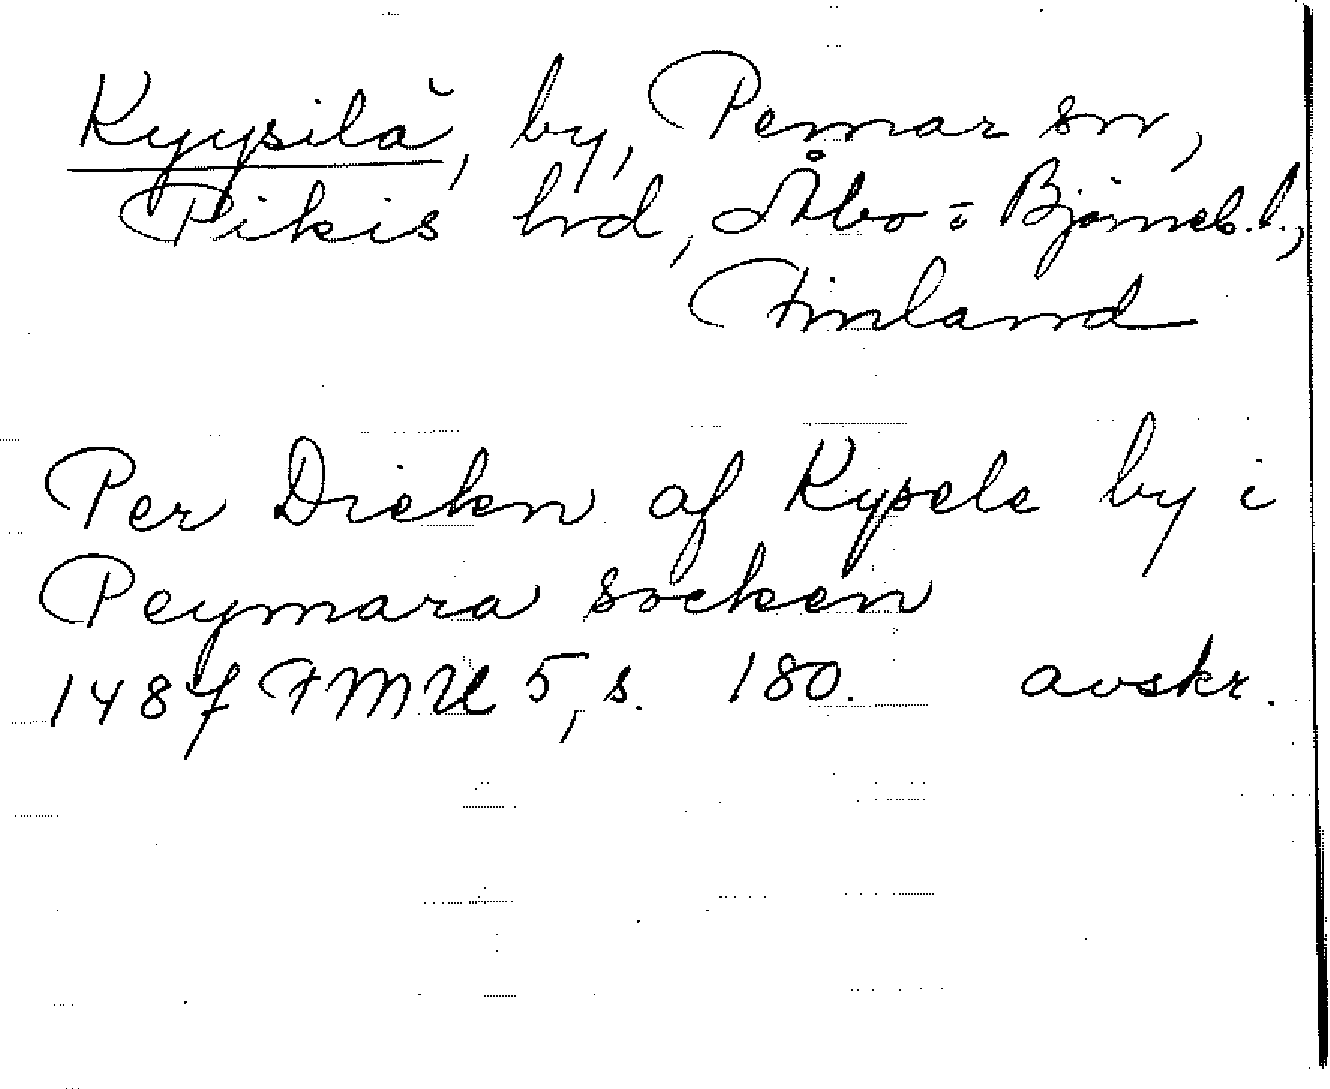 Kyysilä, by, Pemar sn,
Pikis hd, Åbo o Björneb. l.,
Finland
Per Diekn af Kysele by i
Peymara socken
1487 FMU 5, s. 180. avskr.